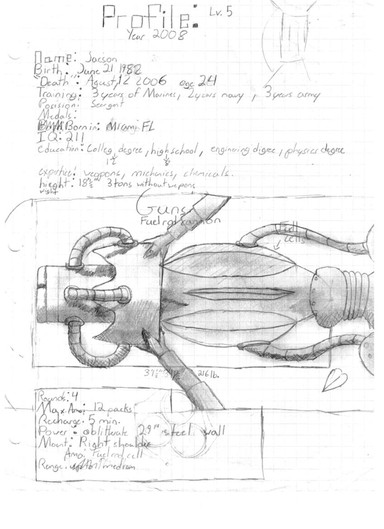 Profile: Lv. 5
Year 2008
Name: Jacson
Birth: June 21 1982
Death: Agust 12 2006 age 24
Training: 3 years of Marines, 2 years navy, 3 years army
Position: Seargnt
Medals:
Born in: Miami FL
I.Q: 211
Education: Colleg degree, high school, enginering degree, physics degree
expertise: weapons, mechanics, chemicals.
hieght: 18½" 3 tons without weapons
Guns
Fuel rod cannon
Fuel
cells
37½" 216 lb.
Rounds: 4
Max Amo: 12 packs
Recharge: 5 min.
Power: obliterate 29" steel wall
Mount: Right shoulder
Amo: Fuel rod cell
Range: medium